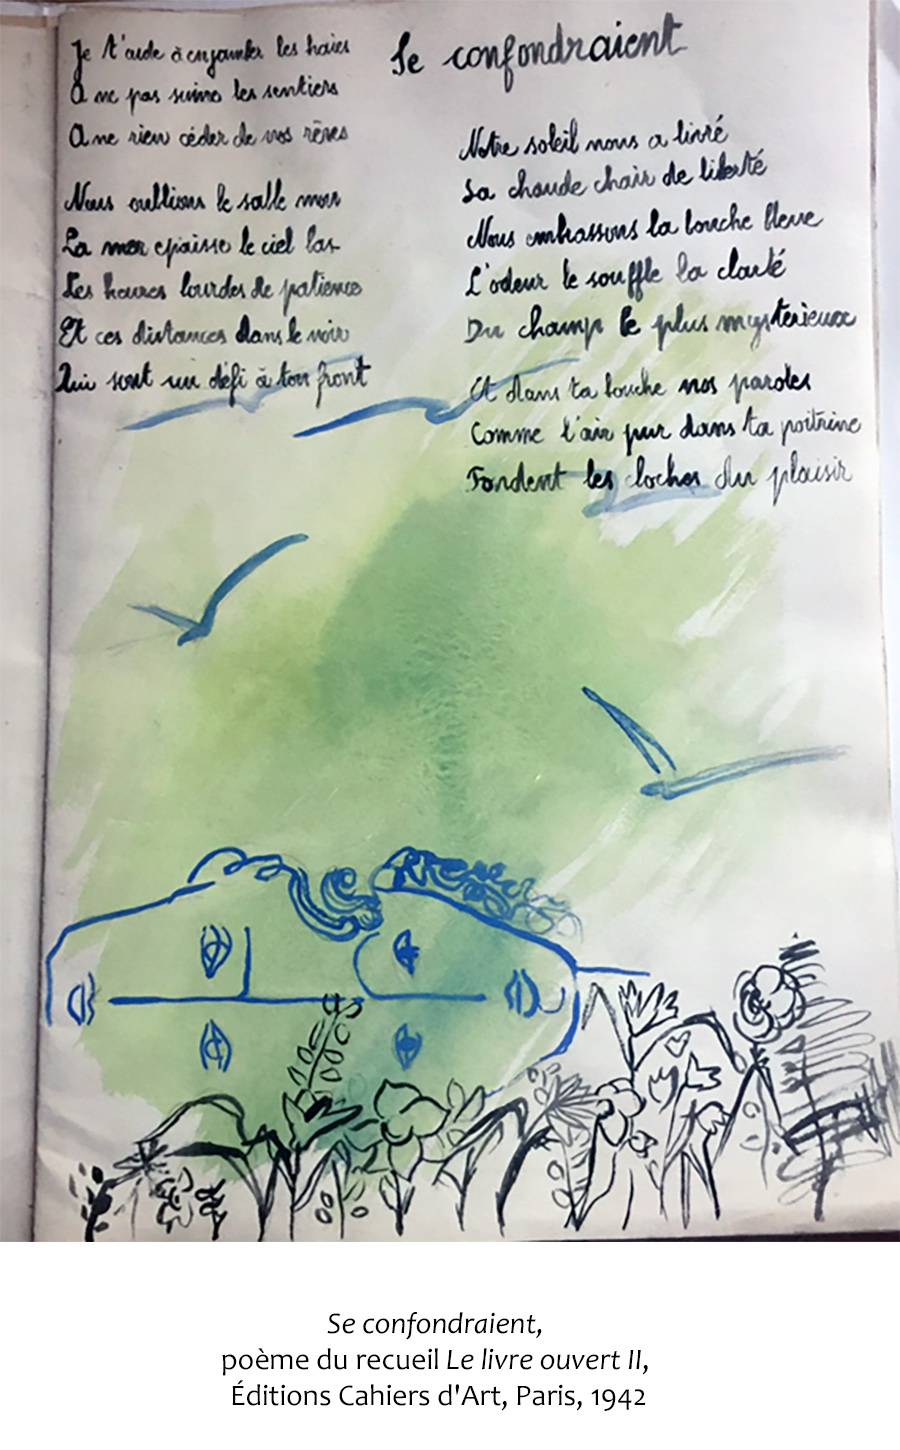 Je t'aide à enjamber les haies
A ne pas suivre les sentiers
A ne rien céder de nos rêves
Nous oublions le sable mou
La mer épaisse le ciel bas
Les heures lourdes de patience
Et ces distances dans le noir
Qui sont un défi à ton front
Se confondraient
Notre soleil nous a livré
Sa chaude chair de liberté
Nous embrassons la bouche bleue
L'odeur le souffle la clarté
Du champ le plus mystérieux
Et dans ta bouche nos paroles
Comme l'air pur dans ta poitrine
Fondent les cloches du plaisir
Se confondraient,
poème du recueil Le livre ouvert II,
Éditions Cahiers d'Art, Paris, 1942